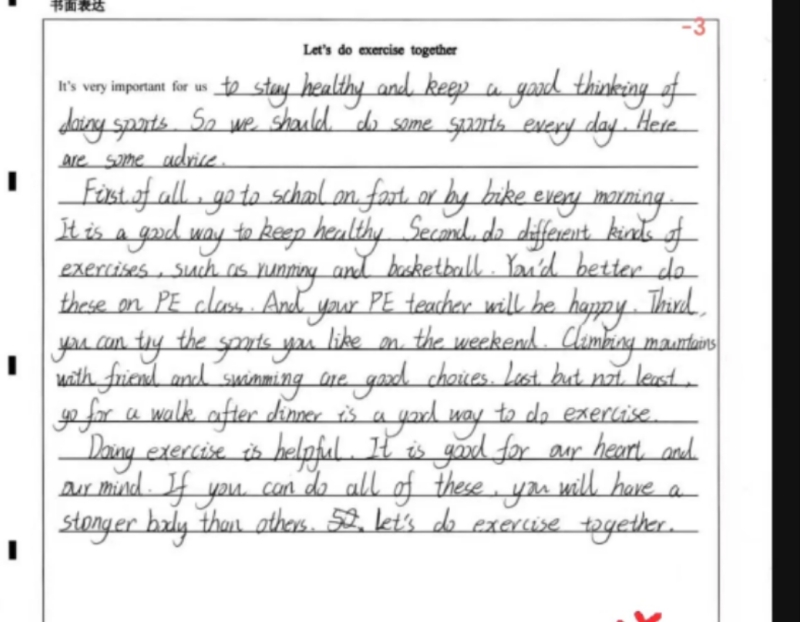 书面表达
-3
Let's do exercise together
It's very important for us to stay healthy and keep a good thinking of
doing sports. So we should do some sports every day. Here
are some advice.
First of all, go to school on foot or by bike every morning.
It is a good way to keep healthy. Second, do different kinds of
exercises, such as running and basketball. You'd better do
these on PE class. And your PE teacher will be happy. Third,
you can try the sports you like on the weekend. Climbing mountains
with friend and swimming are good choices. Last but not least,
go for a walk after dinner is a good way to do exercise.
Doing exercise is helpful. It is good for our heart and
our mind. If you can do all of these, you will have a
stonger body than others. So, Let's do exercise together.